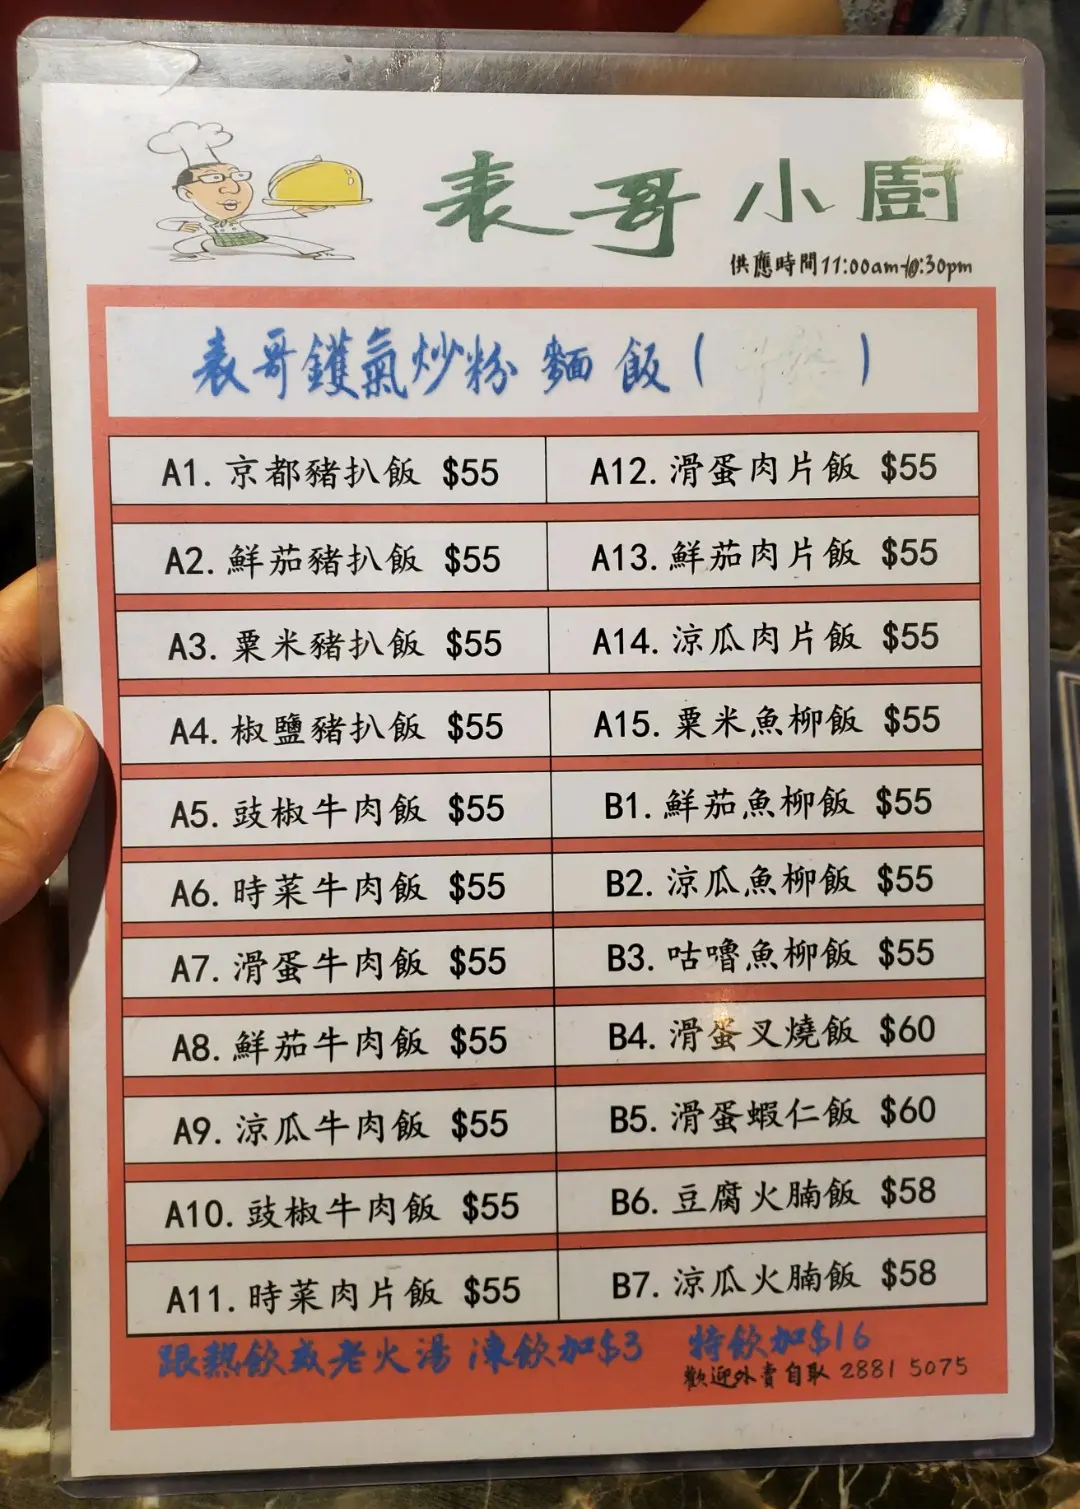 表哥小廚
供應時間11:00am-:30pm
表哥鑊氣炒粉 麵 飯 ( )
A1. 京都豬扒飯 $55
A12. 滑蛋肉片飯 $55
A2. 鮮茄豬扒飯 $55
A13. 鮮茄肉片飯 $55
A3. 粟米豬扒飯 $55
A14. 涼瓜肉片飯 $55
A4. 椒鹽豬扒飯 $55
A15. 粟米魚柳飯 $55
A5. 豉椒牛肉飯 $55
B1. 鮮茄魚柳飯 $55
A6. 時菜牛肉飯 $55
B2. 涼瓜魚柳飯 $55
A7. 滑蛋牛肉飯 $55
B3. 咕嚕魚柳飯 $55
A8. 鮮茄牛肉飯 $55
B4. 滑蛋叉燒飯 $60
A9. 涼瓜牛肉飯 $55
B5. 滑蛋蝦仁飯 $60
A10. 豉椒牛肉飯 $55
B6. 豆腐火腩飯 $58
A11. 時菜肉片飯 $55
B7. 涼瓜火腩飯 $58
跟熱飲或老火湯 凍飲加$3 特飲加$16
歡迎外賣自取 2881 5075